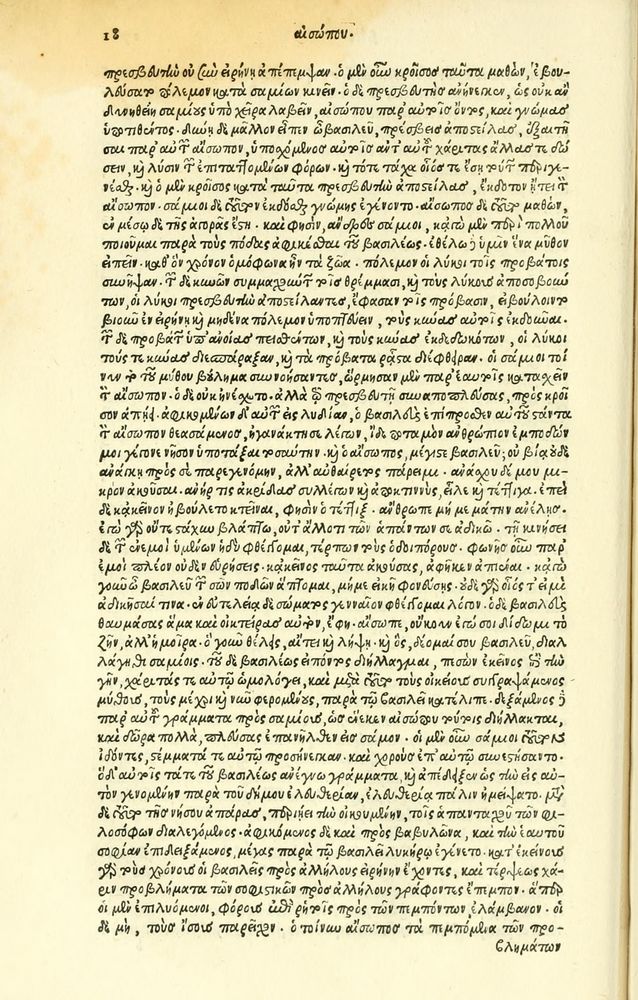 18 αἰσώπου.
πρεσβυτὴν οὐ σὺν εἰρήνῃ ἀπέπεμψαν. ὁ μὲν οὖν κροῖσος ταῦτα μαθὼν, ἐβου-
λεύσατο πόλεμον κατὰ σαμίων κινεῖν. ὁ δὲ πρεσβευτὴς ἀνήνεγκεν, ὡς οὐκ ἂν
δυνηθείη σαμίους ὑπὸ χεῖρα λαβεῖν, αἰσώπου παρ' αὐτοῖς ὄντος, καὶ γνώμας
ὑποτιθέντος. δύνῃ δὲ μᾶλλον εἶπεν ὦ βασιλεῦ, πρέσβεις ἀποστείλας, ἐξαιτῆ
σαι παρ' αὐτῶν τὸν αἴσωπον, ὑποσχόμενος αὐτοῖς ἀντ' αὐτοῦ χάριτας ἄλλας τε δώ
σειν, καὶ λύσιν τῶν ἐπιταττομένων φόρων. καὶ τότε τάχα οἷός τε ἔσῃ τούτων περιγε-
νέσθαι. καὶ ὁ μὲν κροῖσος κατὰ ταῦτα πρεσβευτὴν ἀποστείλας, ἔκδοτον ᾔτει τὸν
αἴσωπον. σάμιοι δὲ τοῦτον ἐκδοῦναι γνώμης ἐγένοντο. αἴσωπος δὲ τοῦτο μαθὼν,
ἐν μέσῳ δὲ τῆς ἀγορᾶς ἔστη. καὶ φησὶν, ἄνδρες σάμιοι, κἀγὼ μὲν περὶ πολλοῦ
ποιοῦμαι παρὰ τοὺς πόδας ἀφικέσθαι τοῦ βασιλέως. ἐθέλω δ' ὑμῖν ἕνα μῦθον
εἰπεῖν. καθ' ὃν χρόνον ὁμόφωνα ἦν τὰ ζῶα. πόλεμον οἱ λύκοι τοῖς προβάτοις
συνῆψαν. τῶν δὲ κυνῶν συμμαχούντων τοῖς θρέμμασι, καὶ τοὺς λύκους ἀποσοβούν
των, οἱ λύκοι πρεσβευτὴν ἀποστείλαντες, ἔφασαν τοῖς προβάσιν, εἰ βούλοιντο
βιοῦν ἐν εἰρήνῃ καὶ μηδένα πόλεμον ὑποπτεύειν, τοὺς κύνας αὐτοῖς ἐκδοῦναι.
τῶν δὲ προβάτων ὑπ' ἀνοίας πεισθέντων, καὶ τοὺς κύνας ἐκδεδωκότων, οἱ λύκοι
τούς τε κύνας διεσπάραξαν, καὶ τὰ πρόβατα ῥᾷστα διέφθειραν. οἱ σάμιοι τοί
νυν τὸ τοῦ μύθου βούλημα συννοήσαντες, ὥρμησαν μὲν παρ' ἑαυτοῖς κατασχεῖν
τὸν αἴσωπον. ὁ δὲ οὐκ ἠνέσχετο. ἀλλὰ τῷ πρεσβευτῇ συναποπλεύσας, πρὸς κροῖ
σον ἀπῄει. ἀφικομένων δ' αὐτῶν εἰς λυδίαν, ὁ βασιλεὺς ἐπίπροσθεν αὐτοῦ στάντα
τὸν αἴσωπον θεασάμενος, ἠγανάκτησε λέγων, ἴδε ποταπὸν ἀνθρώπιον ἐμποδών
μοι γέγονε νῆσον ὑποτάξαι τοσαύτην. καὶ ὁ αἴσωπος, μέγιστε βασιλεῦ, οὐ βίᾳ οὐδὲ
ἀνάγκῃ πρὸς σὲ παρεγενόμην, ἀλλ' αὐθαίρετος πάρειμι. ἀνάσχου δέ μου μι-
κρὸν ἀκοῦσαι. ἀνήρ τις ἀκρίδας συλλέγων καὶ ἀποκτιννὺς, εἷλε καὶ τέττιγα. ἐπεὶ
δὲ κἀκεῖνον ἠβούλετο κτεῖναι, φησὶν ὁ τέττιξ. ἄνθρωπε μή με μάτην ἀνέλῃς.
ἐγὼ γὰρ οὔτε στάχυν βλάπτω, οὔτ' ἄλλο τι τῶν ἁπάντων σε ἀδικῶ. τῇ κινήσει
δὲ τῶν ἐν ἐμοὶ ὑμένων ἡδὺ φθέγγομαι, τέρπων τοὺς ὁδοιπόρους. φωνῆς οὖν παρ'
ἐμοὶ πλέον οὐδὲν εὑρήσεις. κἀκεῖνος ταῦτα ἀκούσας, ἀφῆκεν ἀπιέναι. κἀγὼ
γοῦν ὦ βασιλεῦ τῶν σῶν ποδῶν ἅπτομαι, μή με εἰκῇ φονεύσῃς. οὐδὲ γὰρ οἷός τ' εἰμὶ
ἀδικῆσαί τινα. ἐν εὐτελείᾳ δὲ σώματος γενναῖον φθέγγομαι λόγον. ὁ δὲ βασιλεὺς
θαυμάσας ἅμα καὶ οἰκτείρας αὐτὸν, ἔφη. αἴσωπε, οὐκ ἐγώ σοι δίδωμι τὸ
ζῆν, ἀλλ' ἡ μοῖρα. ὃ γοῦν θέλεις, αἴτει καὶ λήψῃ. καὶ ὃς, δέομαί σου βασιλεῦ, διαλ
λάγηθι σαμίοις. τοῦ δὲ βασιλέως εἰπόντος διήλλαγμαι, πεσὼν ἐκεῖνος ἐπὶ τὴν
γῆν, χάριτάς τε αὐτῷ ὡμολόγει, καὶ μετὰ τοῦτο τοὺς οἰκείους συγγραψάμενος
μύθους, τοὺς μέχρι καὶ νῦν φερομένους, παρὰ τῷ βασιλεῖ κατέλιπε. δεξάμενος δὲ
παρ' αὐτοῦ γράμματα πρὸς σαμίους, ὡς ἕνεκεν αἰσώπου τούτοις διήλλακται,
καὶ δῶρα πολλὰ, πλεύσας ἐπανῆλθεν εἰς σάμον. οἱ μὲν οὖν σάμιοι τοῦτον
ἰδόντες, στέμματά τε αὐτῷ προσήνεγκαν. καὶ χοροὺς ἐπ' αὐτῷ συνεστήσαντο.
ὁ δ' αὐτοῖς τά τε τοῦ βασιλέως ἀνέγνω γράμματα, καὶ ἀπέδειξεν ὡς τὴν εἰς αὐ-
τὸν γενομένην παρὰ τοῦ δήμου ἐλευθερίαν, ἐλευθερίᾳ πάλιν ἠμείψατο. μετὰ
δὲ τοῦτο τῆς νήσου ἀπάρας, περιῄει τὴν οἰκουμένην, τοῖς ἁπανταχοῦ τῶν φι-
λοσόφων διαλεγόμενος. ἀφικόμενος δὲ καὶ πρὸς βαβυλῶνα, καὶ τὴν ἑαυτοῦ
σοφίαν ἐπιδειξάμενος, μέγας παρὰ τῷ βασιλεῖ λυκήρῳ ἐγένετο. κατ' ἐκείνους
γὰρ τοὺς χρόνους οἱ βασιλεῖς πρὸς ἀλλήλους εἰρήνην ἔχοντες, καὶ τέρψεως χά-
ριν προβλήματα τῶν σοφιστικῶν πρὸς ἀλλήλους γράφοντες ἔπεμπον. ἅπερ
οἱ μὲν ἐπιλυόμενοι, φόρους ἐπὶ ῥητοῖς πρὸς τῶν πεμπόντων ἐλάμβανον. οἱ
δὲ μὴ, τοὺς ἴσους παρεῖχον. ὁ τοίνυν αἴσωπος τὰ πεμπόμενα τῶν προ-
βλημάτων